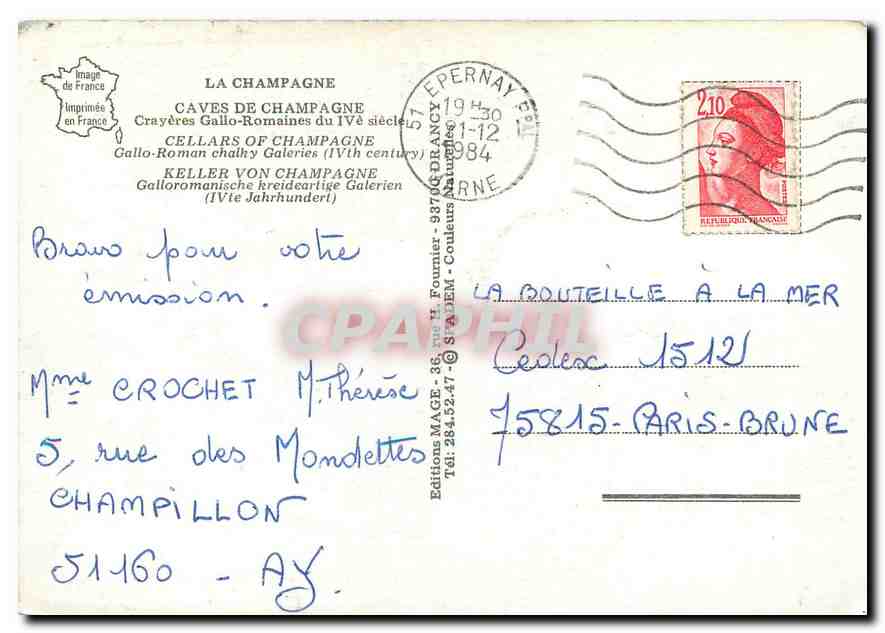 Image
de France
Imprimée
en France
LA CHAMPAGNE
CAVES DE CHAMPAGNE
Crayères Gallo-Romaines du IVè siècle
CELLARS OF CHAMPAGNE
Gallo-Roman chalky Galeries (IVth century)
KELLER VON CHAMPAGNE
Galloromanische kreideartige Galerien
(IVte Jahrhundert)
51 EPERNAY Pal
19 H 30
-12
1984
MARNE
2,10
REPUBLIQUE FRANÇAISE
Bravo pour votre
émission.
Mme CROCHET M.Thérèse
5, rue des Mondettes
CHAMPILLON
51160 - AY
Editions MAGE - 36, rue H. Fournier - 93700 DRANCY
Tél: 284.52.47 - © SPADEM - Couleurs Naturelles
LA BOUTEILLE À LA MER
Cedex 1512
75815-PARIS-BRUNE
CPAPHIL